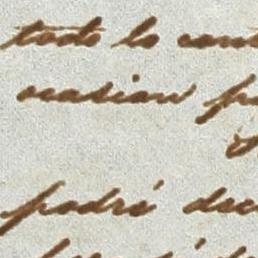 todo lo cont
ocasion pa
t
podré deci